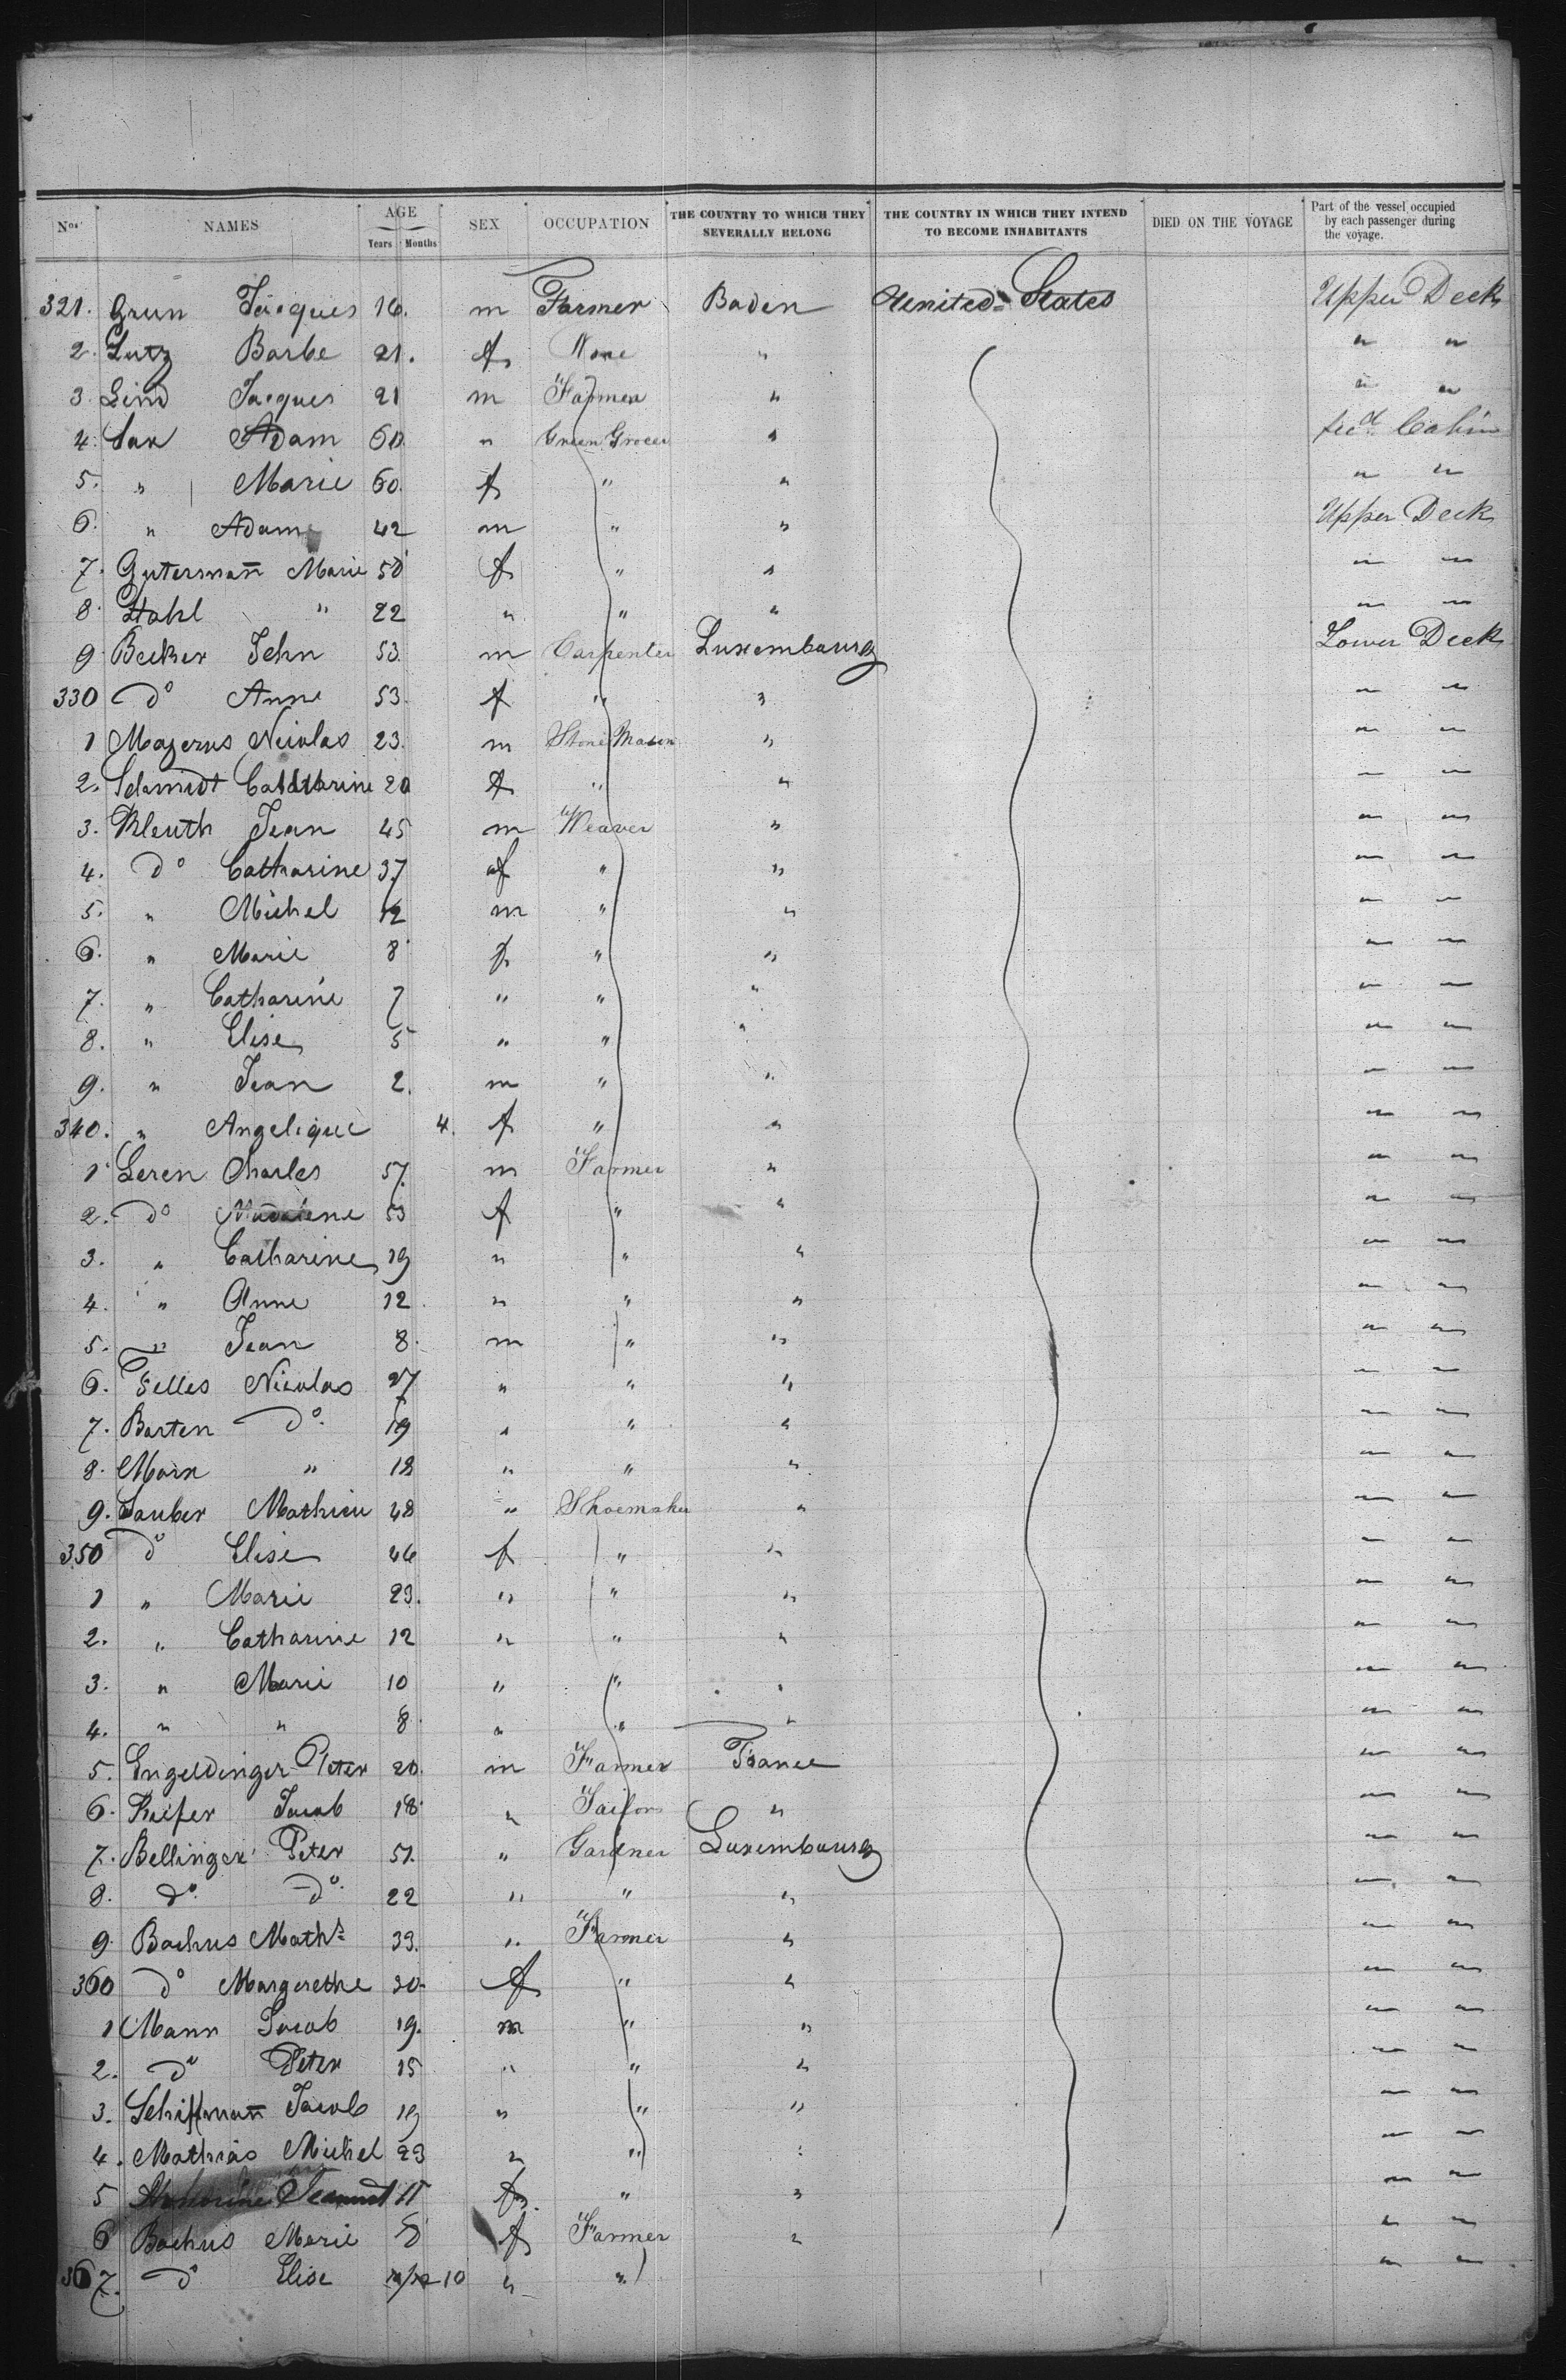 Nos. NAMES AGE Years Months SEX OCCUPATION THE COUNTRY TO WHICH THEY SEVERALLY BELONG THE COUNTRY IN WHICH THEY INTEND TO BECOME INHABITANTS DIED ON THE VOYAGE Part of the vessel occupied by each passenger during the voyage.
321. Grun Jacques 16. m Farmer Baden United States Upper Deck
2. Lutz Barbe 21. f None " " "
3. Lind Jacques 21 m Farmer " " "
4. Sax Adam 60. " Green Grocer " Secd. Cabin
5. " Marie 60. f " " " "
6. " Adam 42 m " " Upper Deck
7. Gutermann Marie 50 f " " " "
8. Stahl " 22 " " " " "
9 Becker John 53. m Carpenter Luxembourg Lower Deck
330 do Anne 53. f " " " "
1 Majerus Nicolas 23. m Stone Mason " " "
2. Schmidt Cathtarine 20 f " " " "
3. Kleuth Jean 45 m Weaver " " "
4. do Catharine 37 f " " " "
5. " Michel 12 m " " " "
6. " Marie 8 f " " " "
7. " Catharine 7 " " " " "
8. " Elise 5 " " " " "
9. " Jean 2. m " " " "
340. " Angelique 4. f " " " "
1 Leren Charles 57. m Farmer " " "
2. do Madalene 53 f " " " "
3. " Catharine 19 " " " " "
4. " Anne 12 " " " " "
5. " Jean 8. m " " " "
6. Felles Nicolas 27 " " " " "
7. Barten do. 19 " " " " "
8. Marx " 18 " " " " "
9. Sauber Mathieu 48 " Shoemaker " " "
350 do Elise 46 f " " " "
1 " Marie 23. " " " " "
2. " Catharine 12 " " " " "
3. " Marie 10 " " " " "
4. " " 8. " " " " "
5. Engeldinger Peter 20. m Farmer France " "
6. Kiefer Jacob 18 " Tailors " " "
7. Bellinger Peter 51. " Gardner Luxembourg " "
8. do. do. 22 " " " " "
9 Bachus Maths 33. " Farmer " " "
360 do Margarethe 30. f " " " "
1 Mann Jacob 19. m " " " "
2. do Peter 15 " " " " "
3. Schiffmann Jacob 19 " " " " "
4. Mathias Michel 23 " " " " "
5 11 f " " " "
6 Bachus Marie f Farmer " " "
367. do Elise 10 " " " "